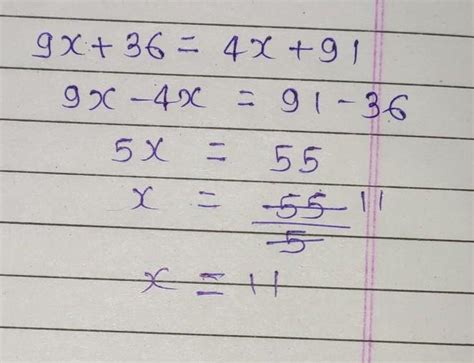 9x + 36 = 4x + 91
9x - 4x = 91 - 36
5x = 55
x = 55/5 11
x = 11